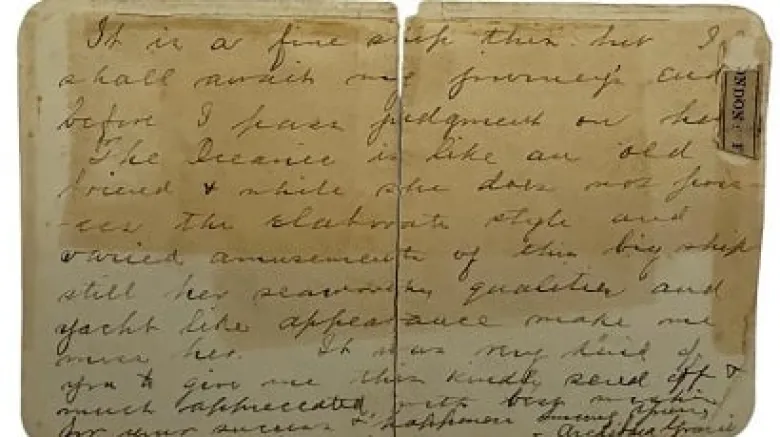 It is a fine ship this but I
shall await my journeys end
before I pass judgment on her
The Oceanic is like an old
friend & while she does not poss-
-ess the elaborate style and
varied amusements of this big ship
still her seaworthy qualities and
yacht like appearance make me
miss her. It was very kind of
you to give me this kindly send off &
much appreciated, with best wishes
for your success & happiness
Archibald Gracie
ONDON: E